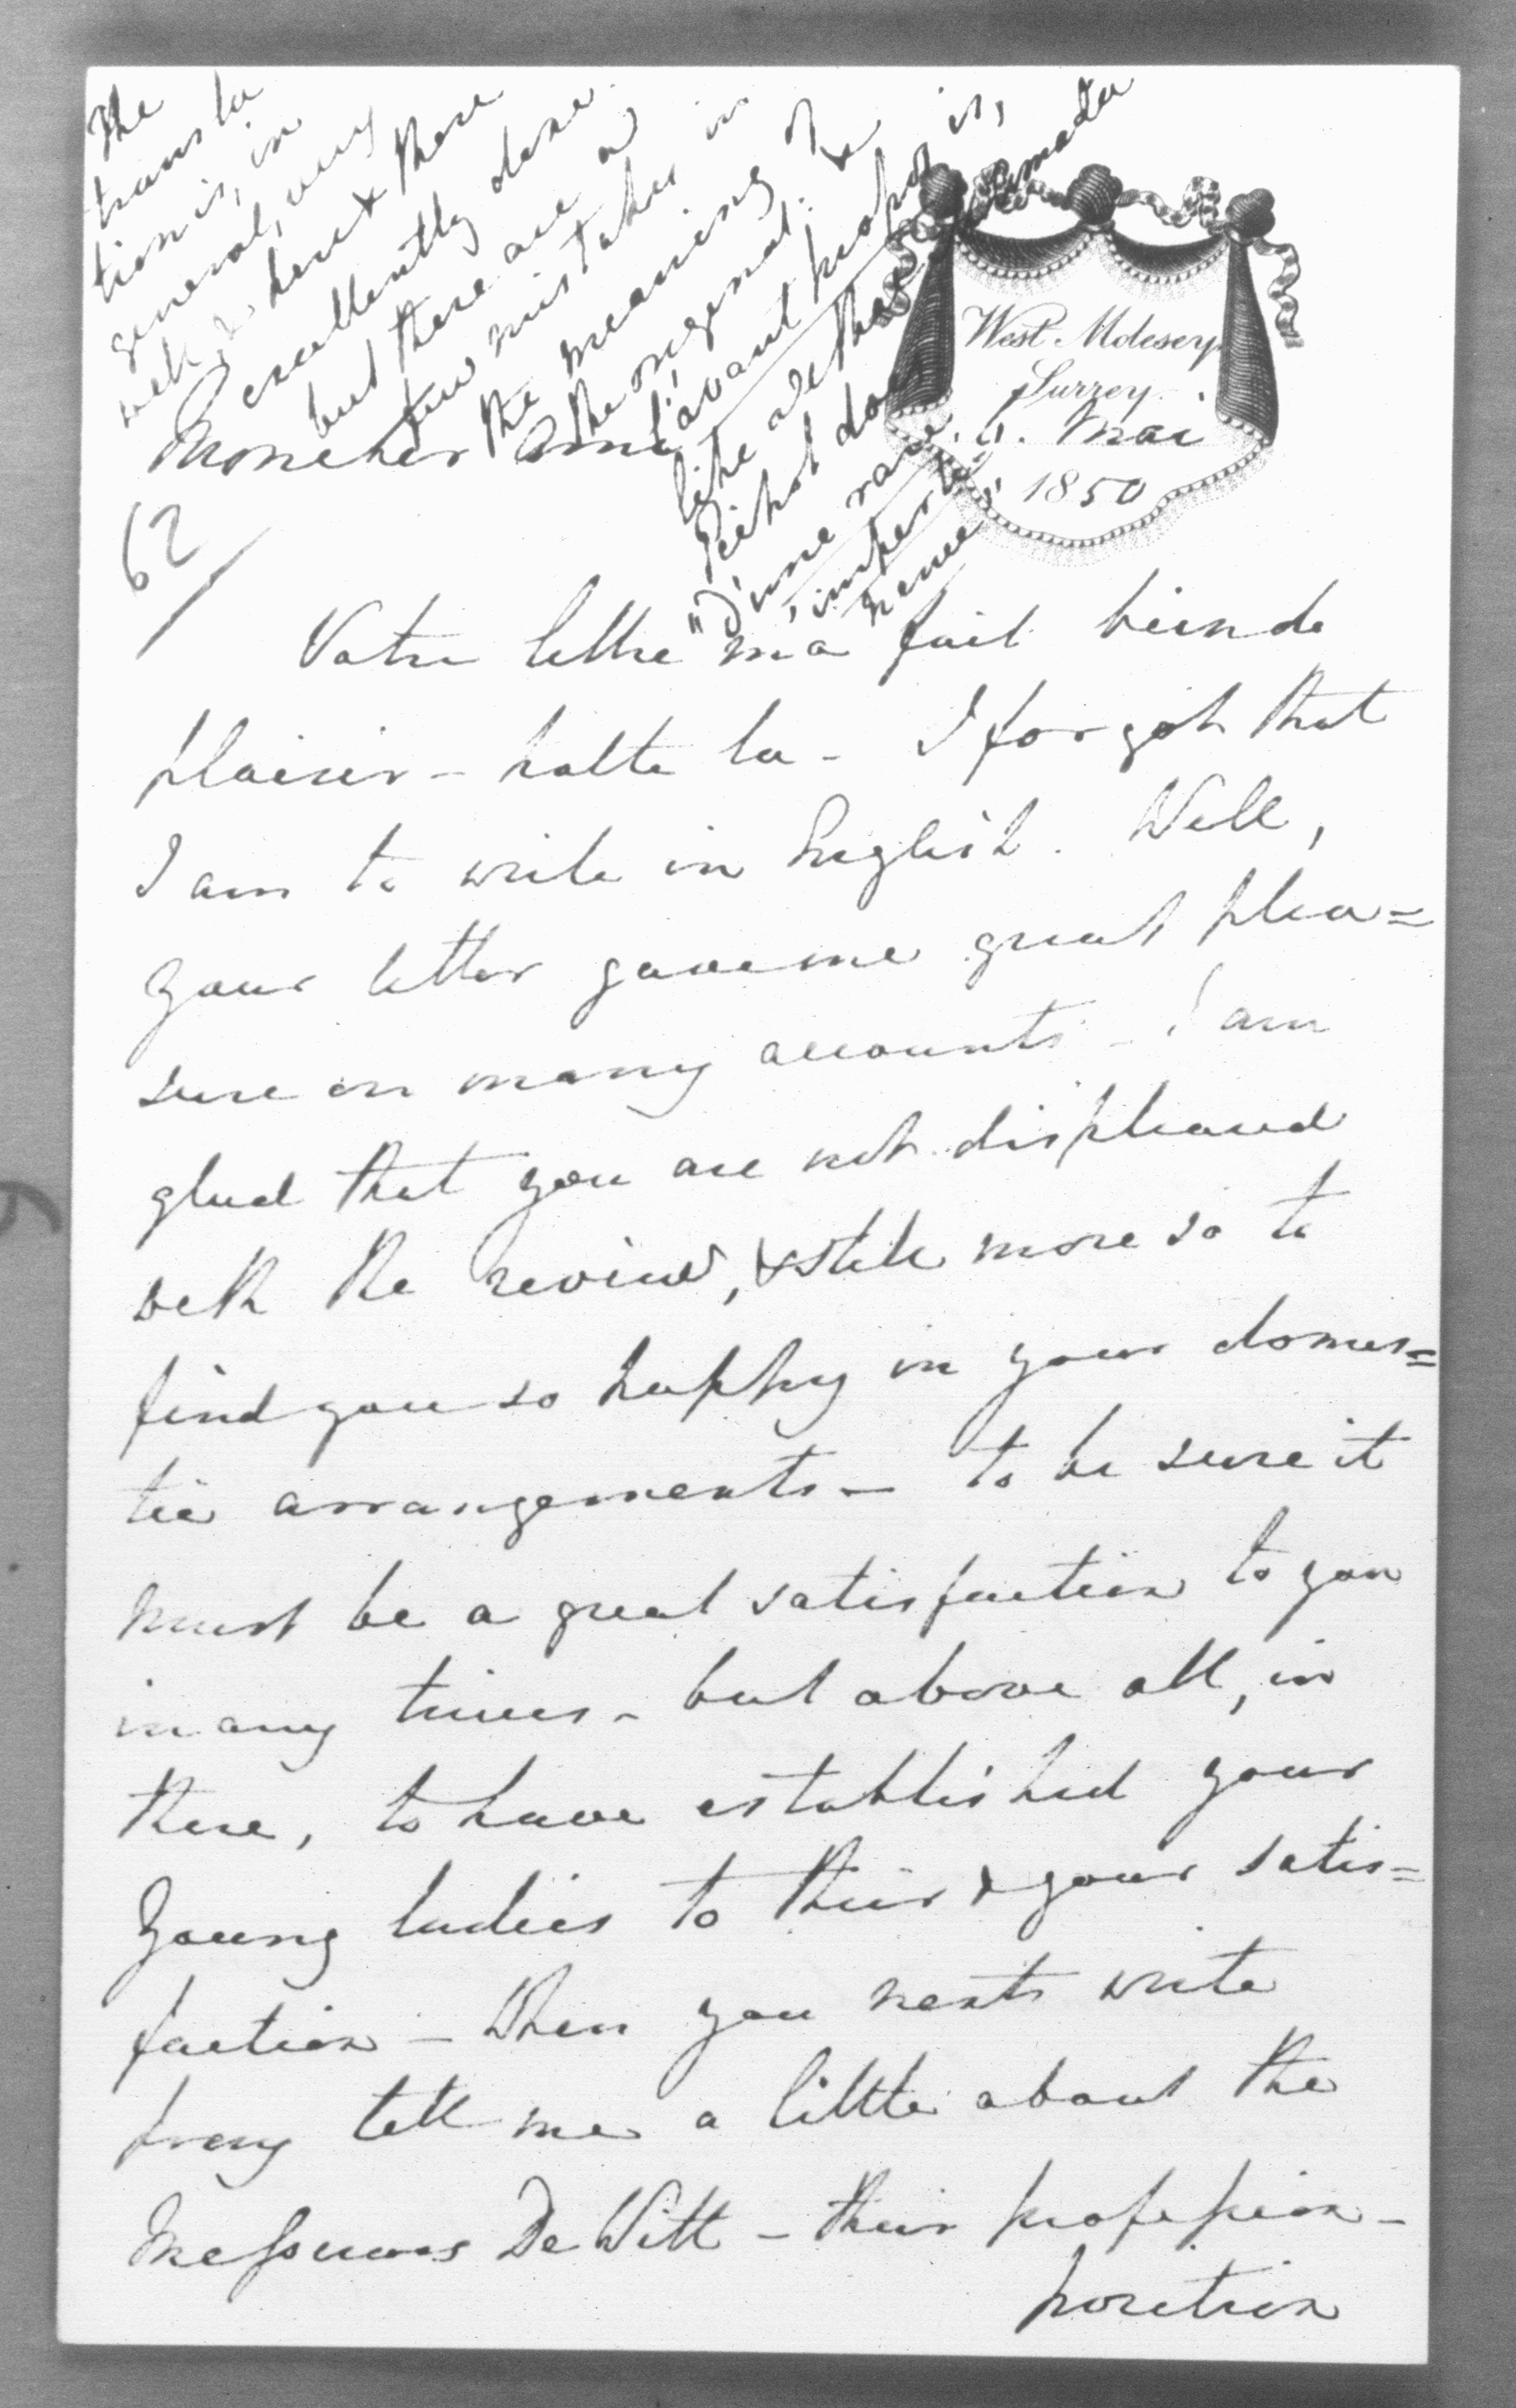 West Molesey
Surrey
6. Mai
1850
Mon cher Ami
62
Votre lettre m'a fait bien de
plaisir - halte la - I forgot that
I am to write in English. Well,
your letter gave me great plea=
sure on many accounts - I am
glad that you are not displeased
with the review, & still more so to
find you so happy in your domes=
tic arrangements - to be sure it
must be a great satisfaction to you
in any times - but above all, in
these, to have established your
young ladies to their & your satis=
faction - When you next write
pray tell me a little about the
Messieurs De Witt - their profession -
position
The
transla
tion is, in
general, very
well, & here & there
excellently done.
but there are a
few mistakes in
the meaning of
the original. &
l'avant propos is,
like all that
Pichot does
"d'une rare
imperti=
nence"